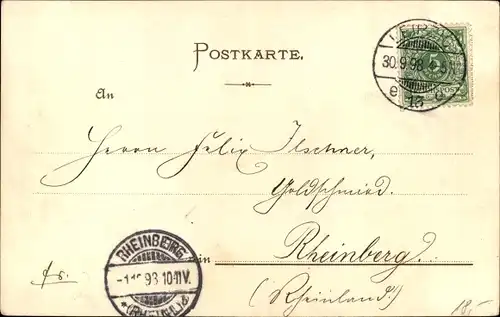 POSTKARTE.
LEIPZIG
30.9.98
e 13 e
An
Herrn Felix Ilschner,
Goldschmied.
in Rheinberg.
(Rheinland.)
RHEINBERG
10-11V.
*(RHEINL)*
fr.